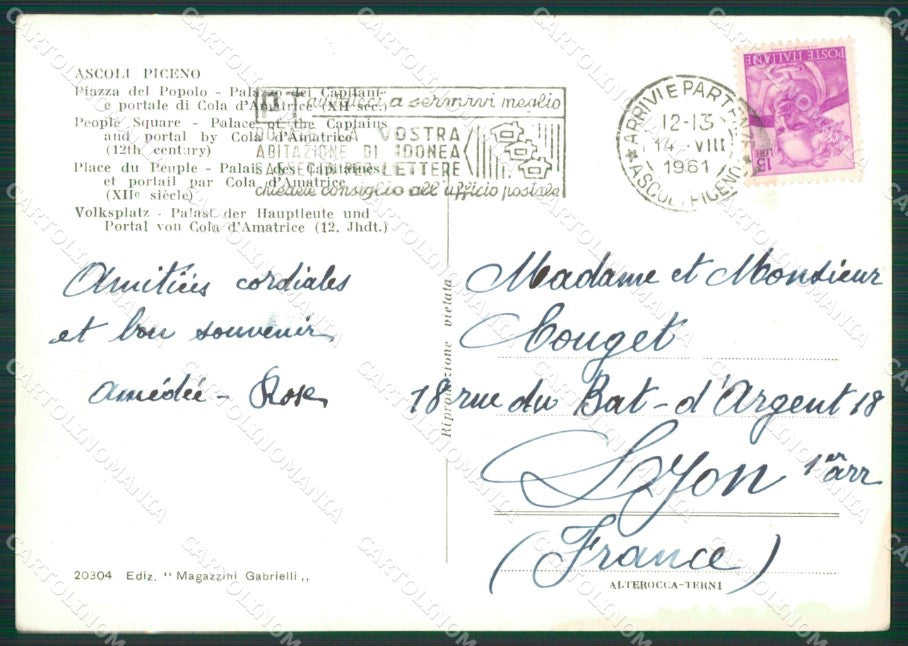 ASCOLI PICENO
Piazza del Popolo - Palazzo dei Capitani
e portale di Cola d'Amatrice (XII sec.)
People Square - Palace of the Captains
and portal by Cola d'Amatrice
(12th century)
Place du Peuple - Palais des Capitaines
et portail par Cola d'Amatrice
(XIIe siècle)
Volksplatz - Palast der Hauptleute und
Portal von Cola d'Amatrice (12. Jhdt.)
a servirvi meglio
VOSTRA
ABITAZIONE DI IDONEA
LETTERE
chiedete consiglio all'ufficio postale
ARRIVI E PARTENZE
12-13
14 · VIII
1961
ASCOLI PICENO
POSTE ITALIANE
LIRE 15
Amitiés cordiales
et bon souvenir
Amédée - Rose
Riproduzione vietata
Madame et Monsieur
Couget
18 rue du Bat-d'Argent 18
Lyon 1er arr
(France)
20304 Ediz. "Magazzini Gabrielli"
ALTEROCCA-TERNI
CARTOLINOMANIA